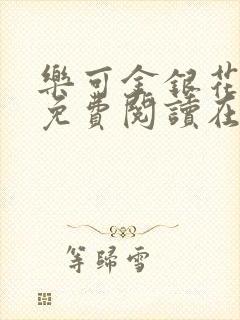 樂可金銀花
免費閱讀在
等歸雪